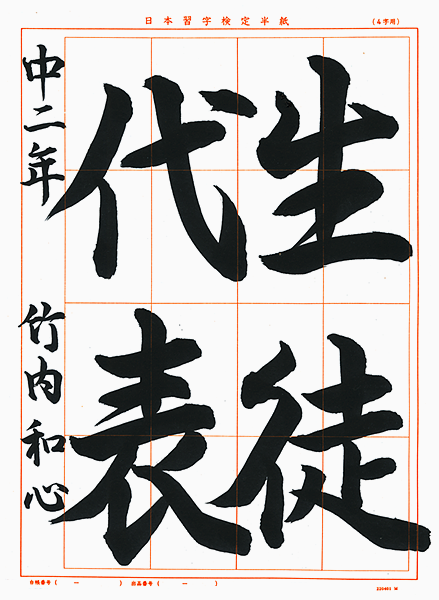 日本習字検定半紙
(4字用)
生徒
代表
中二年 竹内和心
台帳番号( ー ) 出品番号( ー )